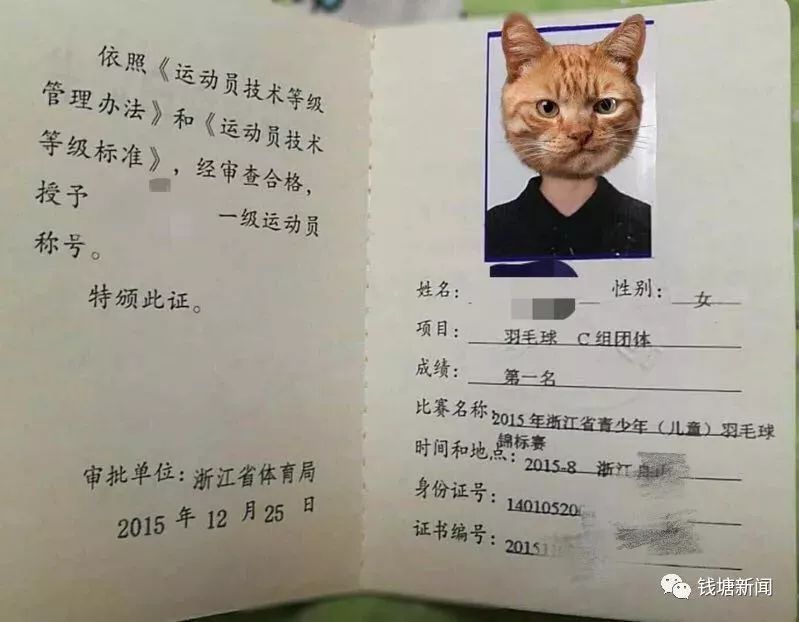 依照《运动员技术等级
管理办法》和《运动员技术
等级标准》,经审查合格,
授予 一级运动员
称号。
特颁此证。
审批单位:浙江省体育局
2015 年 12 月 25 日
姓名: 性别: 女
项目: 羽毛球 C组团体
成绩: 第一名
比赛名称:2015年浙江省青少年(儿童)羽毛球
锦标赛
时间和地点:2015-8 浙江
身份证号:14010520
证书编号:20151
钱塘新闻